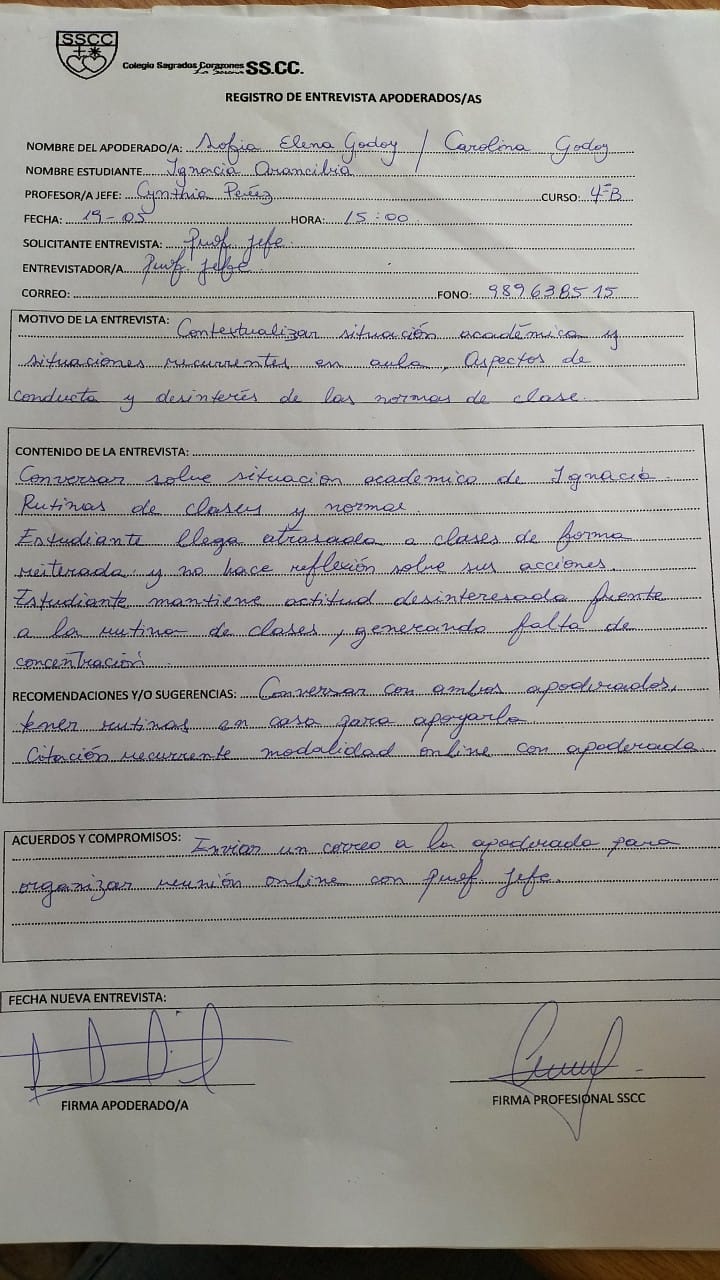 SSCC
Colegio Sagrados Corazones SS.CC.
La Serena
REGISTRO DE ENTREVISTA APODERADOS/AS
NOMBRE DEL APODERADO/A: Sofia Elena Godoy / Carolina Godoy
NOMBRE ESTUDIANTE Ignacia Arancibia
PROFESOR/A JEFE: Cynthia Peréz CURSO: 4ºB
FECHA: 19-05 HORA: 15:00
SOLICITANTE ENTREVISTA: Prof. Jefe.
ENTREVISTADOR/A Prof. Jefe.
CORREO: FONO: 989638515
MOTIVO DE LA ENTREVISTA: Contextualizar situación académica y
situaciones recurrentes en aula, Aspectos de
conducta y desinterés de las normas de clase.
CONTENIDO DE LA ENTREVISTA:
Conversar sobre situación académica de Ignacia.
Rutinas de clases y normas.
Estudiante llega atrasada a clases de forma
reiterada y no hace reflexión sobre sus acciones.
Estudiante mantiene actitud desinteresada frente
a la rutina de clases, generando falta de
concentración.
RECOMENDACIONES Y/O SUGERENCIAS: Conversar con ambos apoderados,
tener rutinas en casa para apoyarla.
Citación recurrente modalidad online con apoderada.
ACUERDOS Y COMPROMISOS: Enviar un correo a la apoderada para
organizar reunión online con prof. Jefe.
FECHA NUEVA ENTREVISTA:
FIRMA APODERADO/A FIRMA PROFESIONAL SSCC